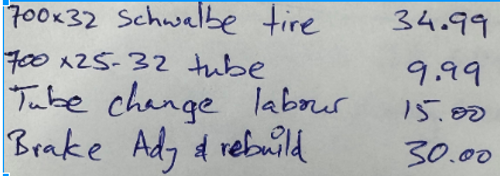 700x32 Schwalbe tire 34.99
700 x25-32 tube 9.99
Tube change labour 15.00
Brake Adj & rebuild 30.00